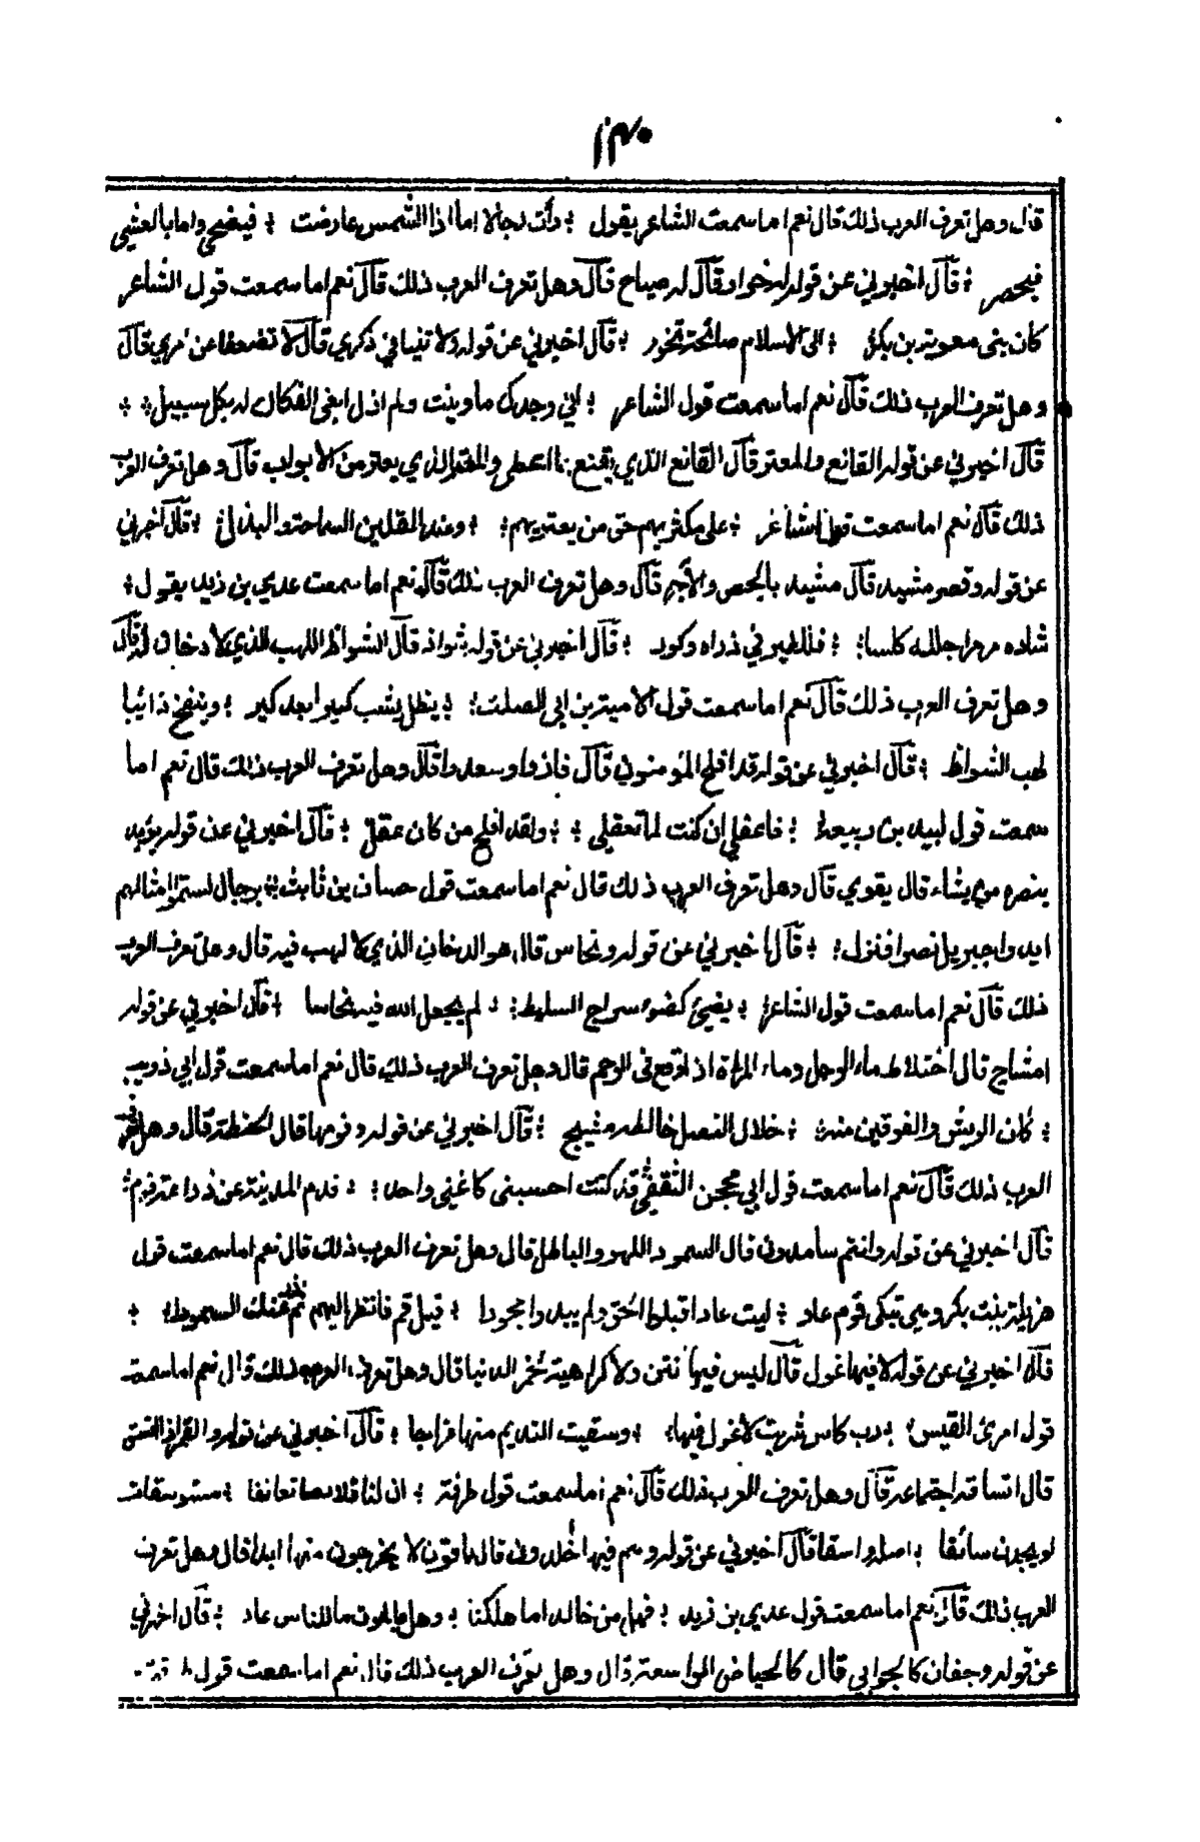 ١٣٠
قال وهل تعرف العرب ذلك قال نعم اما سمعت الشاعر يقول ؛ رأت رجلا اما اذا الشمس عارضت ؛ فيضحي واما بالعشي
فيحصر ؛ قال اخبرني عن قوله له خوار قال له صياح قال وهل تعرف العرب ذلك قال نعم اما سمعت قول الشاعر
كان بنى معوية بن بكر ؛ الى الاسلام صائحة تخور ؛ قال اخبرني عن قوله ولا تنيا في ذكري قال لا تضعفا عن امري قال
وهل تعرف العرب ذلك قال نعم اما سمعت قول الشاعر ؛ اني وجدك ما ونيت ولم ازل ابغى الفكاك له بكل سبيل ؛ ؛
قال اخبرني عن قوله القانع والمعتر قال القانع الذي يقنع بما اعطى والمعتر الذي يعتر من الابواب قال وهل تعرف العرب
ذلك قال نعم اما سمعت قول الشاعر ؛ على مكثريهم حق من يعتريهم ؛ ؛ وعند المقلين السماحة والبذل ؛ قال اخبرني
عن قوله وقصر مشيد قال مشيد بالجص والآجر قال وهل تعرف العرب ذلك قال نعم اما سمعت عدي بن زيد يقول ؛
شاده مرمرا جلله كلسا ؛ ؛ فللطير في ذراه وكور ؛ قال اخبرني عن قوله شواظ قال الشواظ اللهب الذي لا دخان له قال
وهل تعرف العرب ذلك قال نعم اما سمعت قول الامية بن ابي الصلت ؛ ؛ يظل يشب كيرا بعد كير ؛ وينفخ دائبا
لهب الشواظ ؛ قال اخبرني عن قوله قد افلح المؤمنون قال فازوا وسعدوا قال وهل تعرف العرب ذلك قال نعم اما
سمعت قول لبيد بن ربيعة ؛ فاعقلي ان كنت لما تعقلي ؛ ؛ ولقد افلح من كان عقل ؛ قال اخبرني عن قوله يؤيد
بنصره من يشاء قال يقوي قال وهل تعرف العرب ذلك قال نعم اما سمعت قول حسان بن ثابت ؛ برجال لستموا امثالهم
ايدوا جبريل نصرا فنزل ؛ ؛ قال اخبرني عن قوله ونحاس قال هو الدخان الذي لا لهب فيه قال وهل تعرف العرب
ذلك قال نعم اما سمعت قول الشاعر ؛ يضيئ كضوء سراج السليط ؛ ؛ لم يجعل الله فيه نحاسا ؛ قال اخبرني عن قوله
امشاج قال اختلاط ماء الرجل وماء المرأة اذا وقع في الرحم قال وهل تعرف العرب ذلك قال نعم اما سمعت قول ابي ذويب
؛ كان الريش والفوقين منه ؛ خلال النصل خالطه مشيج ؛ قال اخبرني عن قوله وفومها قال الحنطة قال وهل تعرف
العرب ذلك قال نعم اما سمعت قول ابي محجن الثقفي قد كنت احسبني كاغني واحد ؛ ؛ قدم المدينة عن زراعة فوم ؛
قال اخبرني عن قوله وانتم سامدون قال السمود اللهو والباطل قال وهل تعرف العرب ذلك قال نعم اما سمعت قول
هزيلة بنت بكر وهي تبكي قوم عاد ؛ ليت عادا قبلوا الحق ولم يبدوا جحودا ؛ قيل قم فانظر اليهم ثم ذر عنك السمودا ؛ ؛
قال اخبرني عن قوله لا فيها غول قال ليس فيها نتن ولا كراهية كخمر الدنيا قال وهل تعرف العرب ذلك قال نعم اما سمعت
قول امرئ القيس ؛ رب كاس شربت لا غول فيها ؛ ؛ وسقيت النديم منها مزاجا ؛ قال اخبرني عن قوله والقمر اذا اتسق
قال اتساقه اجتماعه قال وهل تعرف العرب ذلك قال نعم اما سمعت قول طرفة ؛ ان لنا قلائصا نقانقا ؛ مستوسقات
لو يجدن سائقا ؛ قال اخبرني عن قوله وهم فيها خلدون قال باقون لا يخرجون منها ابدا قال وهل تعرف
العرب ذلك قال نعم اما سمعت قول عدي بن زيد ؛ فهل من خالد اما هلكنا ؛ وهل بالموت ما للناس عار ؛ قال اخبرني
عن قوله وجفان كالجوابي قال كالحياض الواسعة قال وهل تعرف العرب ذلك قال نعم اما سمعت قول